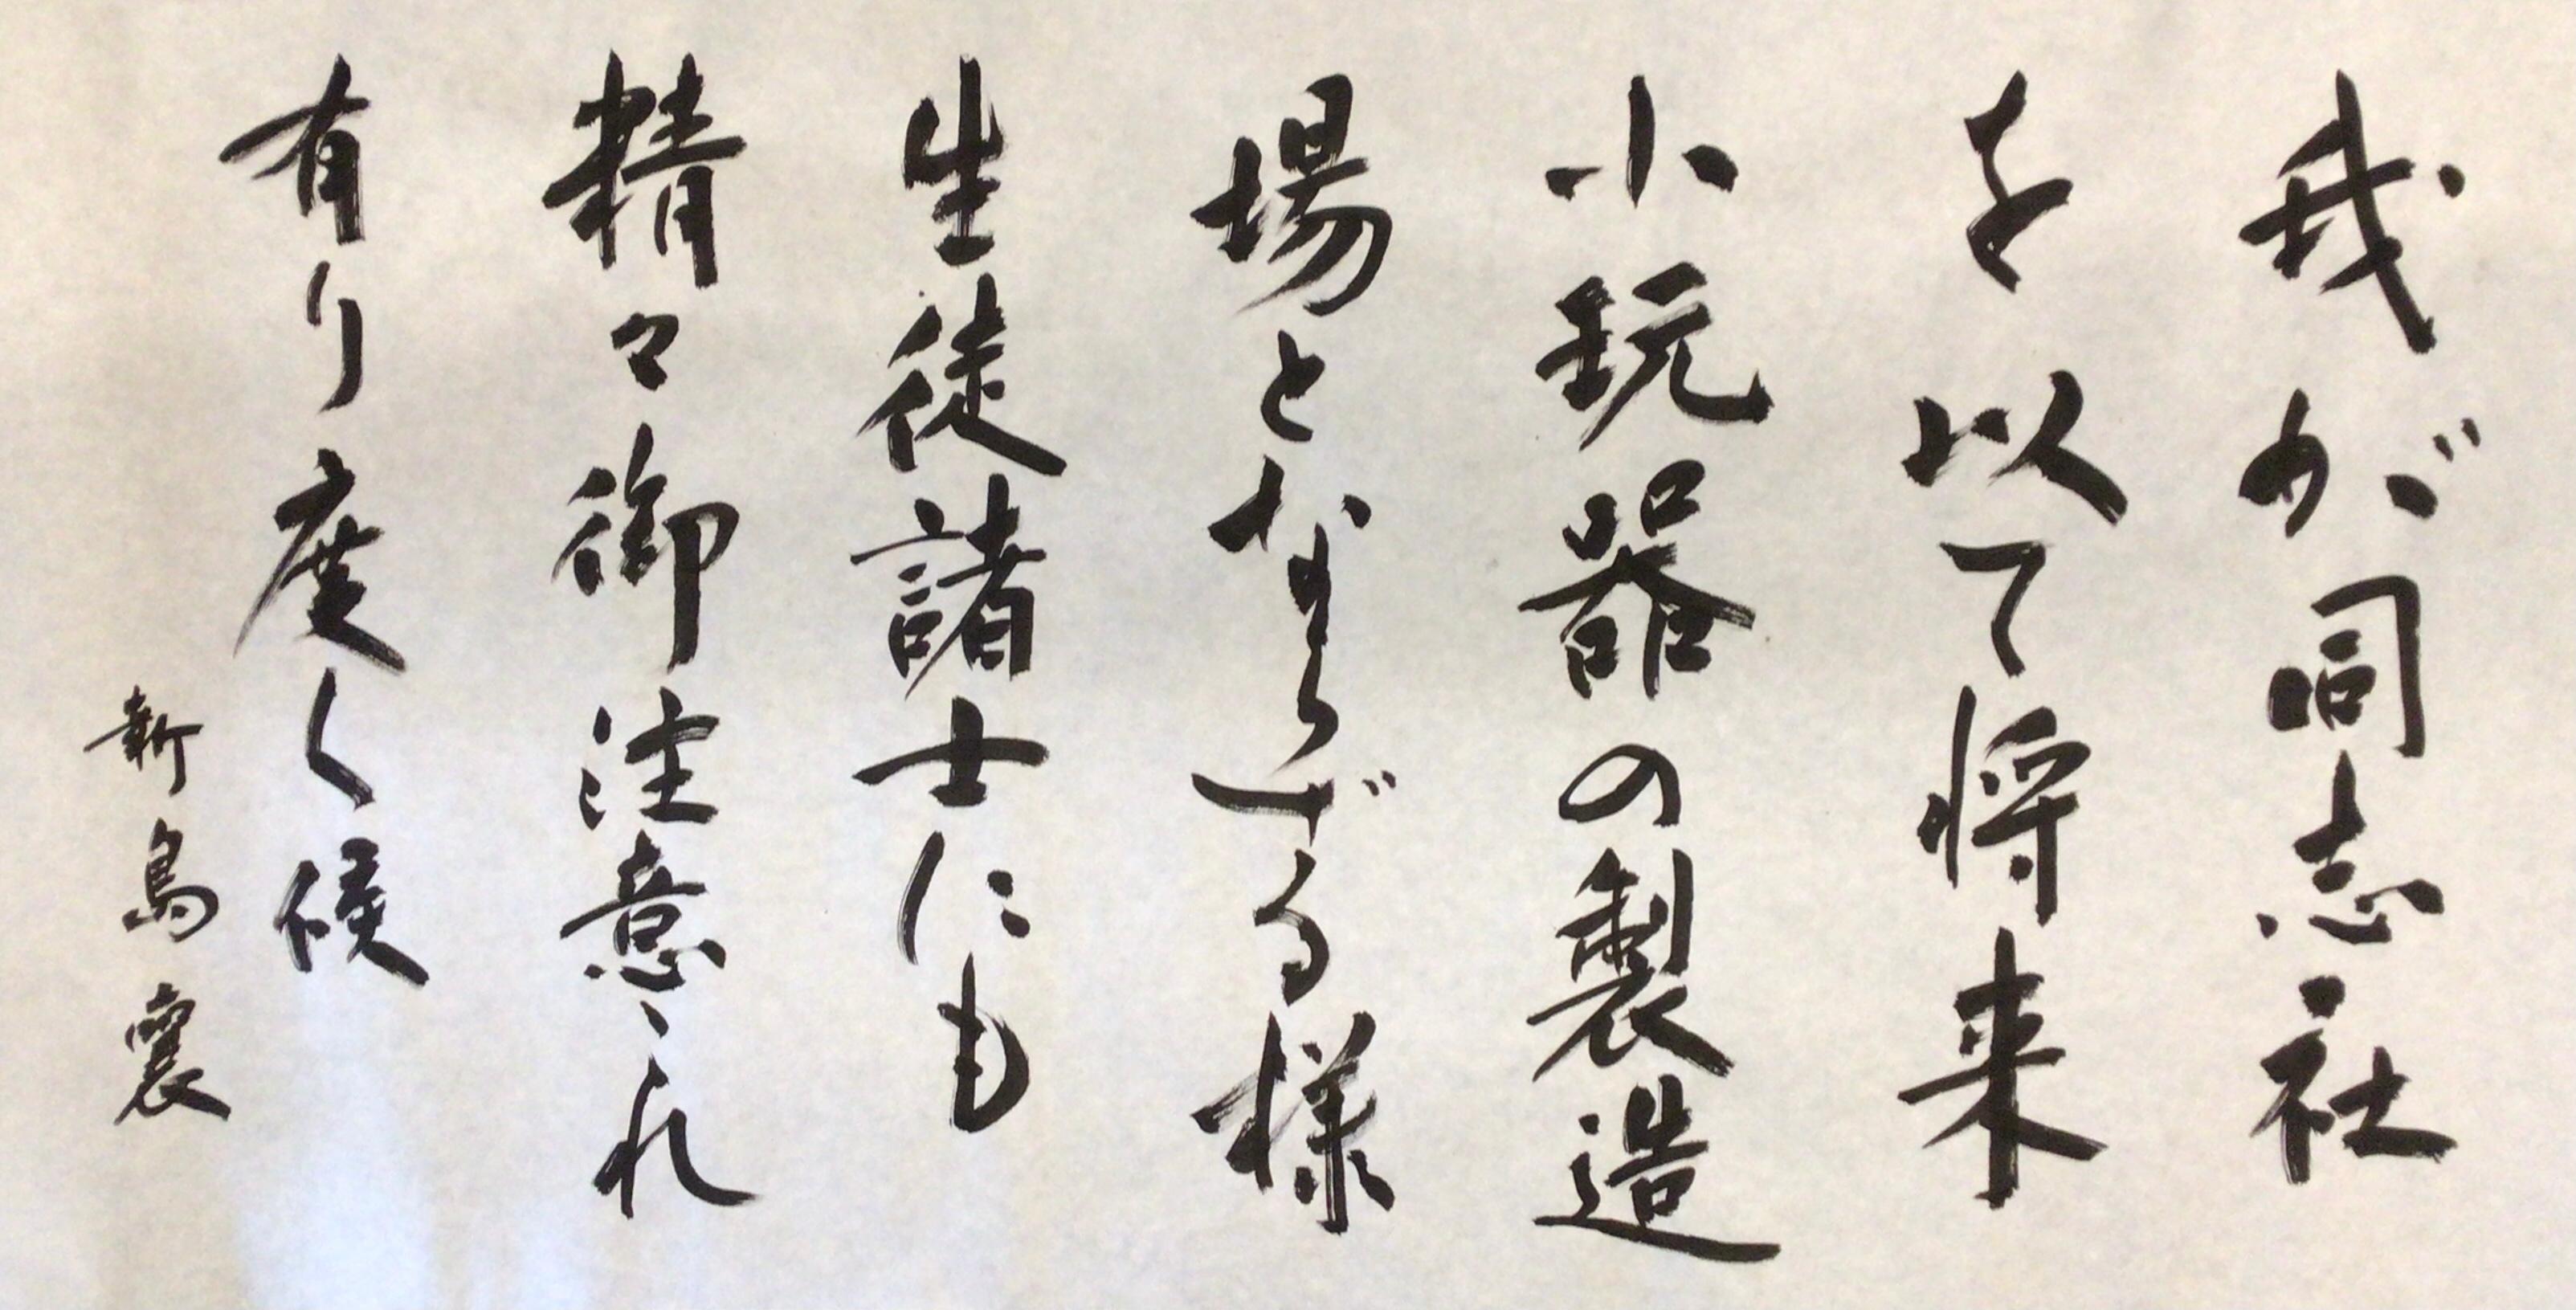 我が同志社
を以て将来
小玩器の製造
場とならざる様
生徒諸士にも
精々御注意これ
有り度く候
新島襄